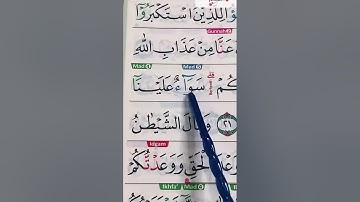 لِلَّذِينَ اسْتَكْبَرُوٓا
Gunnah
عَنَّا مِنْ عَذَابِ اللّٰهِ
Mad 4 Mad 5
كُمْ ۗ سَوَآءٌ عَلَيْنَآ
٢١
وَقَالَ الشَّيْطٰنُ
Idgam
وَعْدَ الْحَقِّ وَوَعَدْتُّكُمْ
Ikhfa' Mad 6